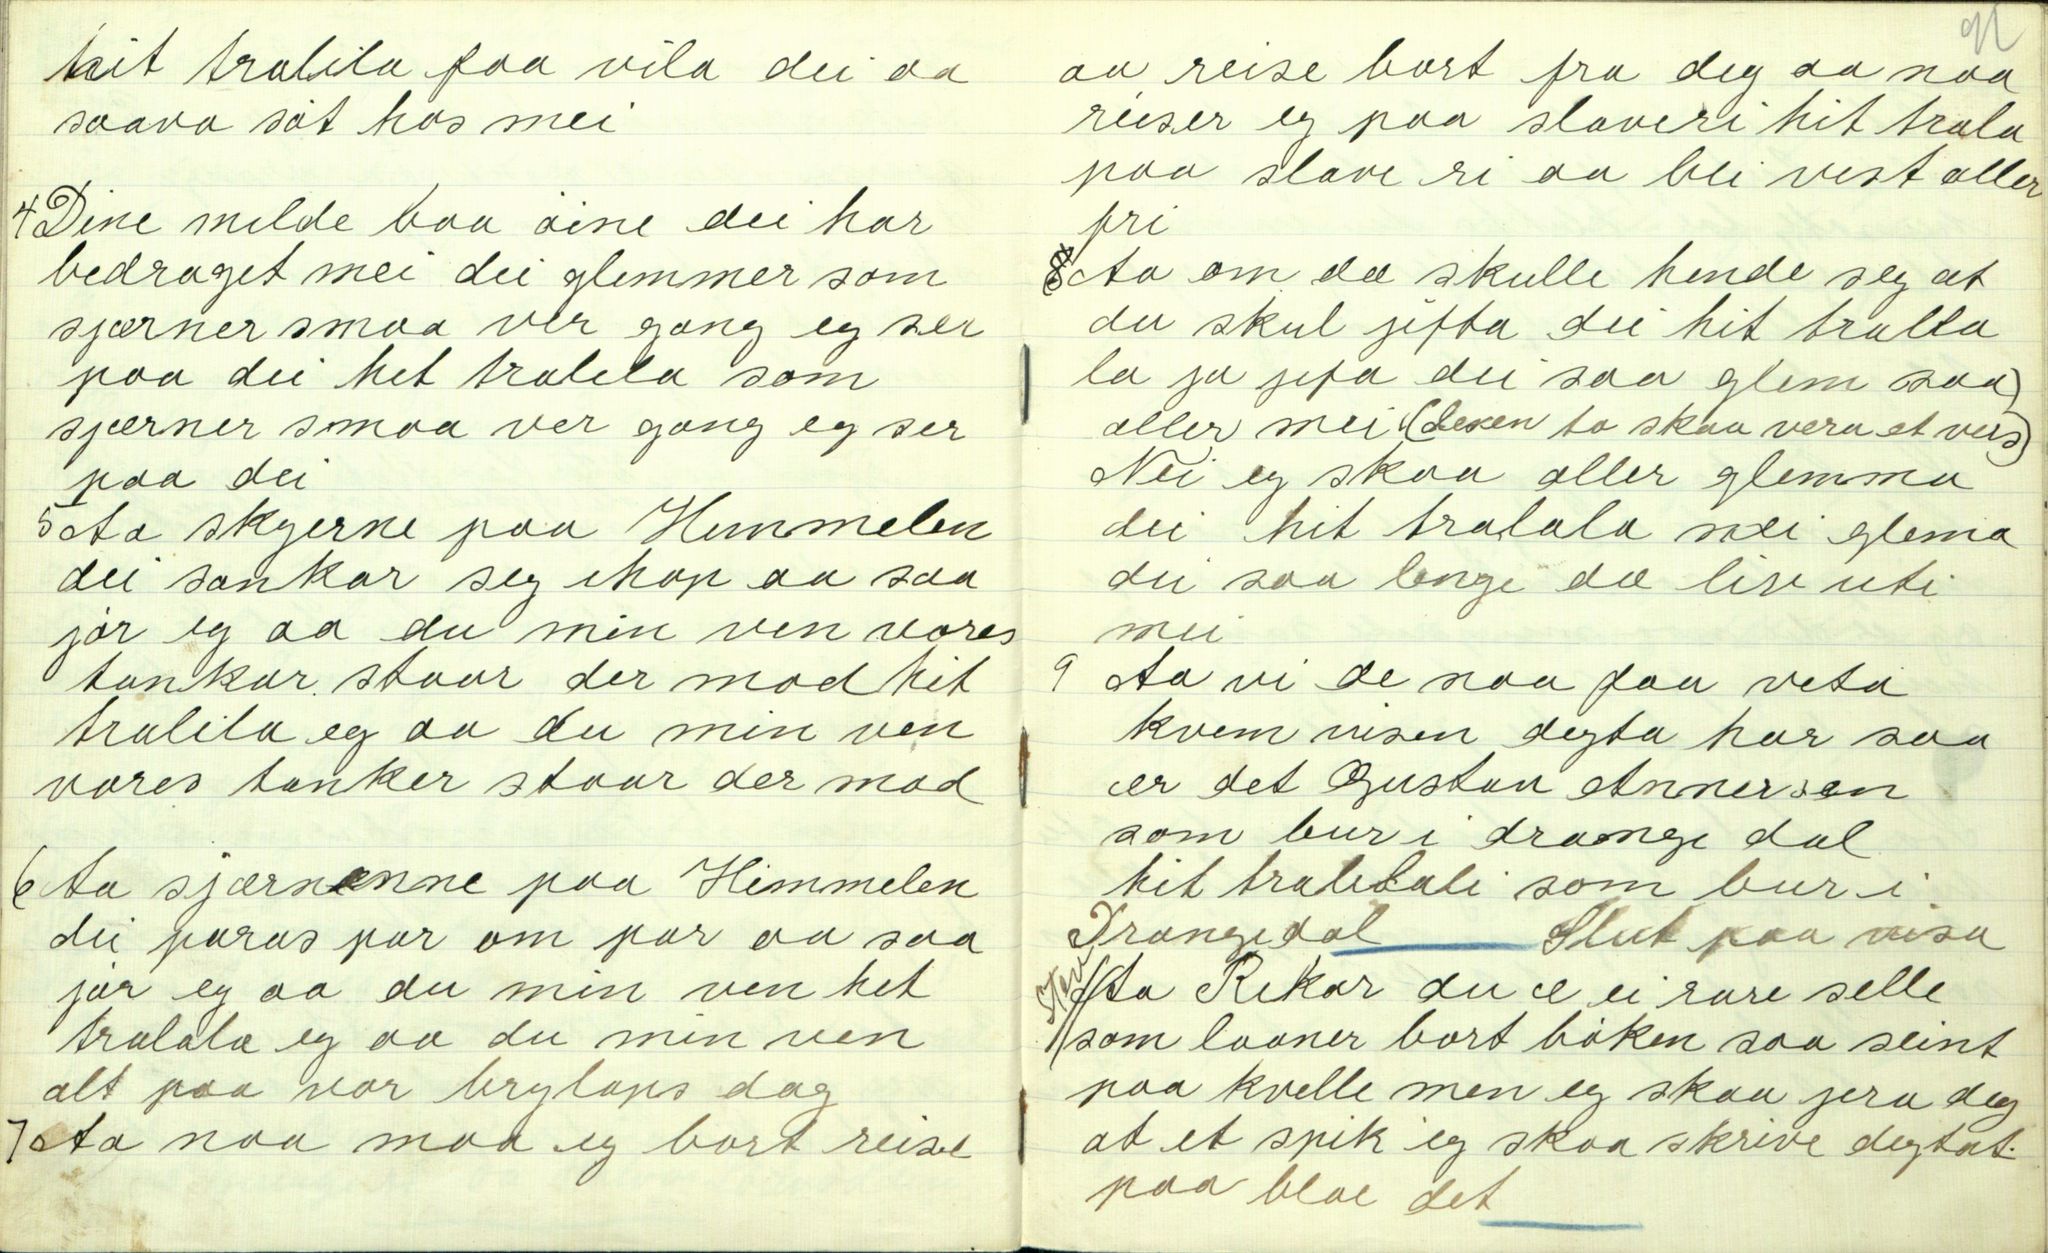 hit tralila faa vila dei aa
saava söt hos mei
4 Dine milde baa öine dei har
bedraget mei dei glemmer som
sjærner smaa ver gang eg ser
paa dei hit tralila som
sjærner smaa ver gang eg ser
paa dei
5 Aa skyerne paa Himmelen
dei sankar seg ihop aa saa
jör eg aa du min ven vores
tankar staar der mod hit
tralila eg aa du min ven
vores tanker staar der mod
6 Aa sjærnenne paa Himmelen
dei paras par om par aa saa
jör eg aa du min ven hit
tralala eg aa du min ven
alt paa vor brylops dag
7 Aa naa maa eg bort reise
aa reise bort fra deg aa naa
reiser eg paa slaveri hit trala
paa slave ri aa bli vest aller
fri
8 Aa om dæ skulle hende seg at
du skul jifta dei hit tralla
la ja jifa dei saa glem saa
aller mei (dessen to skaa vera et veis)
Nei eg skaa aller glemma
dei hit tralala nei glema
dei saa lenge dæ live uti
mei
9 Aa vi de naa faa veta
kvem visen degta har saa
er det Gustav Annersen
som bur i drange dal
hit tralilali som bur i
Drangedal Slut paa visa
Stev
1 Aa Rikar du æ ei rare selle
som laaner bort böken saa seint
paa kvelle men eg skaa jera deg
at et spik eg skaa skrive degtat
paa blae det